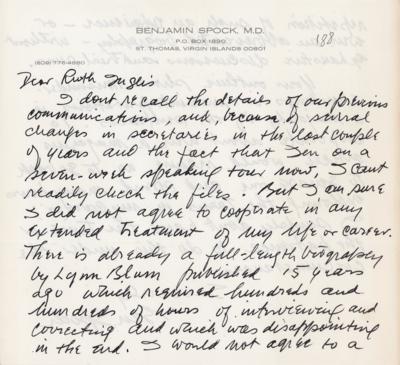 BENJAMIN SPOCK, M.D.
P.O. BOX 1890
ST. THOMAS, VIRGIN ISLANDS 00801
188
(809) 776-4880
Dear Ruth Inglis
I dont recall the details of our previous
communications, and, because of several
changes in secretaries in the last couple
of years and the fact that I'm on a
seven-week speaking tour now, I cant
readily check the files. But I am sure
I did not agree to cooperate in any
extended treatment of my life or career.
There is already a full-length biography
by Lynn Blum published 15 years
ago which required hundreds and
hundreds of hours of interviewing and
correcting and which was disappointing
in the end. I would not agree to a